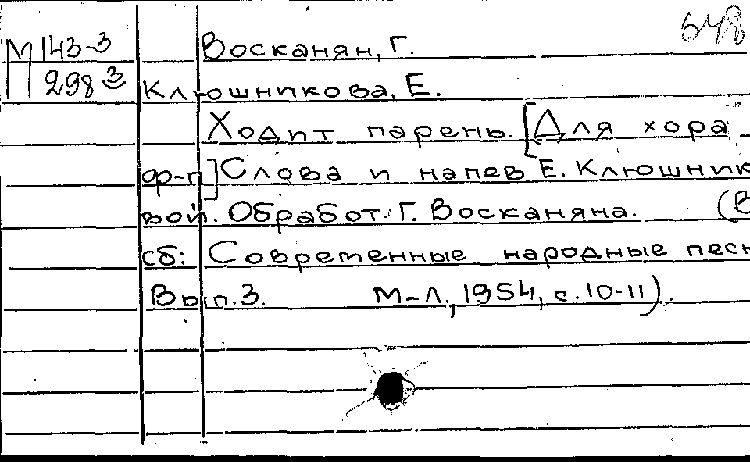 648
М 143-3 Восканян, Г.
П 298 3 Клюшникова, Е.
Ходит парень. [Для хора -
фр-п] Слова и напев Е. Клюшник
вой. Обработ. Г. Восканяна. (В
сб: Современные народные песн
Вып. 3. М-Л, 1954, с. 10-11).